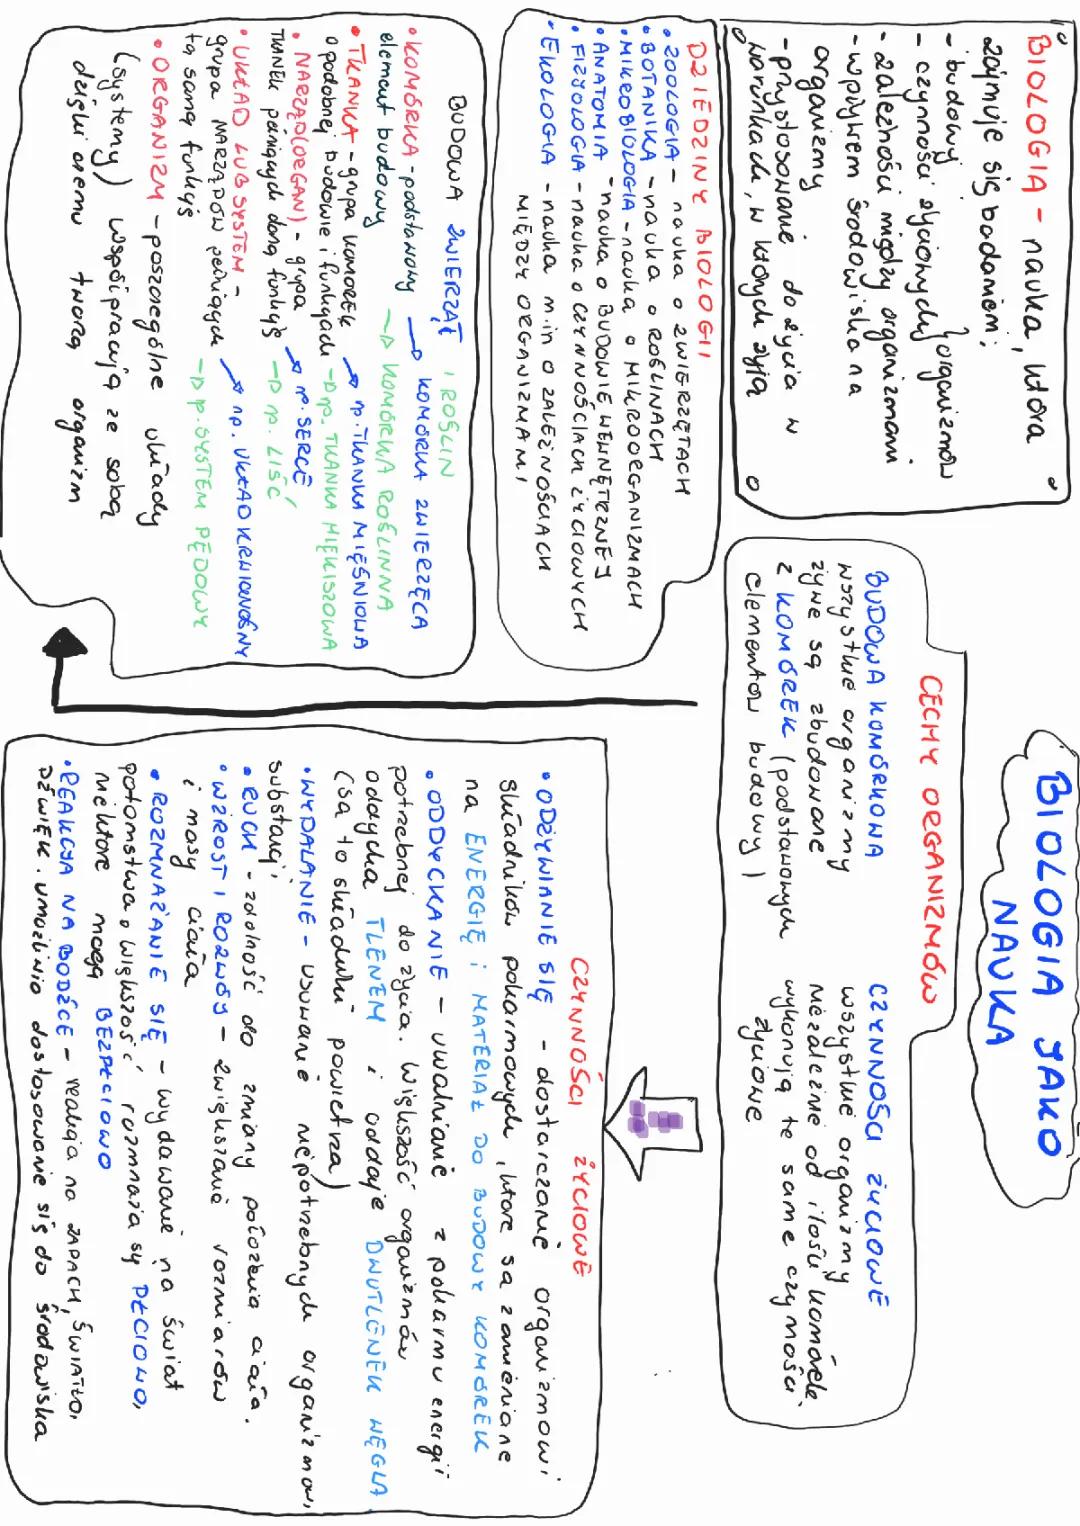 BIOLOGIA JAKO
NAUKA
BIOLOGIA - nauka, która
zajmuje się badaniem:
- budowy
- czynności życiowych } organizmów
- zależności między organizmami
- wpływem środowiska na
organizmy
- przystosowanie do życia w
warunkach, w których żyją
CECHY ORGANIZMÓW
BUDOWA KOMÓRKOWA
wszystkie organizmy
żywe są zbudowane
z KOMÓREK (podstawowych
elementów budowy)
CZYNNOŚCI ŻYCIOWE
wszystkie organizmy
niezależnie od ilości komórek
wykonują te same czynności
życiowe
DZIEDZINY BIOLOGII
• ZOOLOGIA - nauka o ZWIERZĘTACH
• BOTANIKA - nauka o ROŚLINACH
• MIKROBIOLOGIA - nauka o MIKROORGANIZMACH
• ANATOMIA - nauka o BUDOWIE WEWNĘTRZNEJ
• FIZJOLOGIA - nauka o CZYNNOŚCIACH ŻYCIOWYCH
• EKOLOGIA - nauka m.in o ZALEŻNOŚCIACH
MIĘDZY ORGANIZMAMI
BUDOWA ZWIERZĄT I ROŚLIN
• KOMÓRKA - podstawowy → KOMÓRKA ZWIERZĘCA
element budowy → KOMÓRKA ROŚLINNA
• TKANKA - grupa komórek → np. TKANKA MIĘŚNIOWA
o podobnej budowie i funkcjach → np. TKANKA MIĘKISZOWA
• NARZĄD (ORGAN) - grupa → np. SERCE
TKANEK pełniących daną funkcję → np. LIŚĆ
• UKŁAD LUB SYSTEM -
grupa NARZĄDÓW pełniących → np. UKŁAD KRWIONOŚNY
tą samą funkcję → p. SYSTEM PĘDOWY
• ORGANIZM - poszczególne układy
(systemy) współpracują ze sobą
dzięki czemu tworzą organizm
CZYNNOŚCI ŻYCIOWE
• ODŻYWIANIE SIĘ - dostarczanie organizmowi
składników pokarmowych, które są zamieniane
na ENERGIĘ i MATERIAŁ DO BUDOWY KOMÓREK
• ODDYCHANIE - uwalnianie z pokarmu energii
potrzebnej do życia. Większość organizmów
oddycha TLENEM i oddaje DWUTLENEK WĘGLA
(są to składniki powietrza)
• WYDALANIE - usuwanie niepotrzebnych organizmowi
substancji
• RUCH - zdolność do zmiany położenia ciała.
• WZROST I ROZWÓJ - zwiększanie rozmiarów
i masy ciała
• ROZMNAŻANIE SIĘ - wydawanie na świat
potomstwa, większość rozmnaża się PŁCIOWO,
niektóre mogą BEZPŁCIOWO
• REAKCJA NA BODŹCE - reakcja na ZAPACH, ŚWIATŁO,
DŹWIĘK. umożliwia dostosowanie się do środowiska